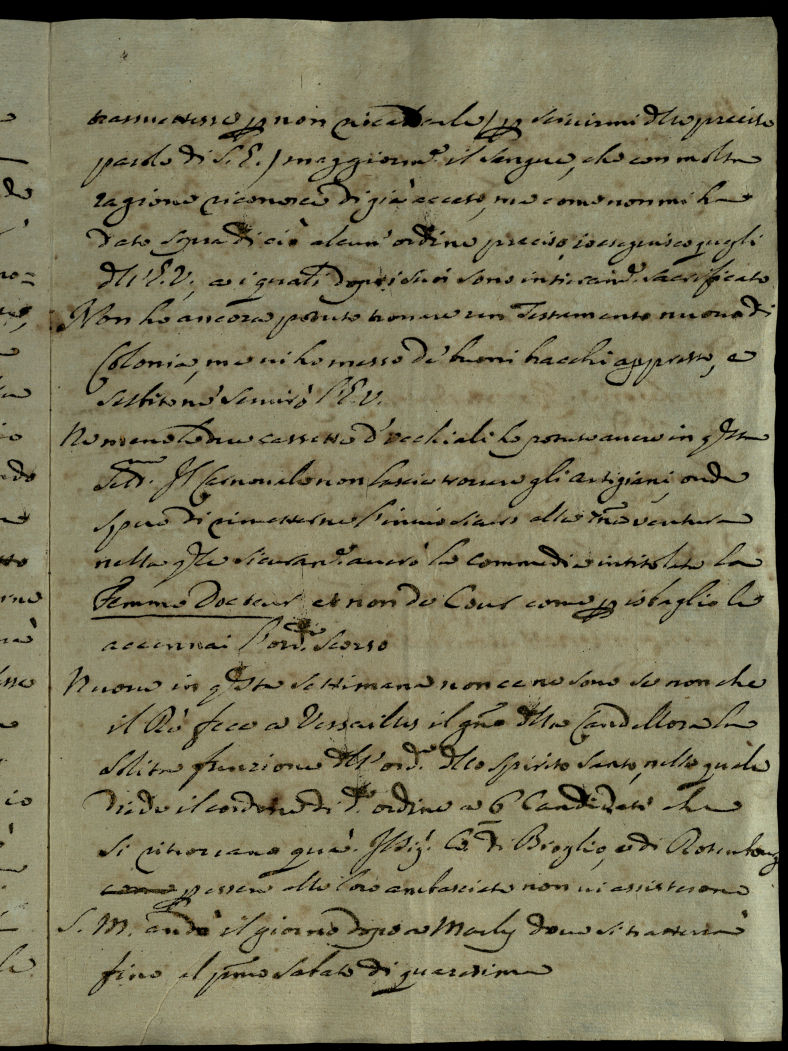 trasmettesse p non riscaldarle / p servirmi dlle precise
parole di S. E. / maggiorm.e il sangue, che con molta
ragione riconosce di già acceso, ma come non mi ha
dato sopra di ciò alcun' ordine preciso, io eseguisco quegli
dll' E. V., a i quali dopo i suoi sono intieram.e sacrificato
Non ho ancora potuto trovare un Testamento nuovo di
Colonia, ma vi ho messo de' buoni bracchi appresso, e
subito ne servirò l'E. V.
Ne meno le due cassette d'occhiali ho potuto avere in q.sta
Sett.na Il Carnovale non lascia trovare gli artigiani, onde
spero di rimetterne l'invio sicuro alla sett.na ventura
nella q.le sicuram.e averò la commedia intitolata la
Femme Docteur et non de Cour come p isbaglio le
accennai l'ord.o scorso
Nuove in q.sta settimana non ce ne sono se non che
il Rè fece a Versailles il g.no dlla Candellora la
solita funzione dll' ord.e dllo Spirito Santo, nella quale
diede il cordone di d.o ordine a 6 Candidati che
si ritrovano quà. Il Sig.r C.e di Broglio, e di Rottembourg
p essere alle loro ambasciate non vi assisterono
S. M. andò il giorno dopo a Marly dove si tratterrà
fino al p.mo sabato di quaresima